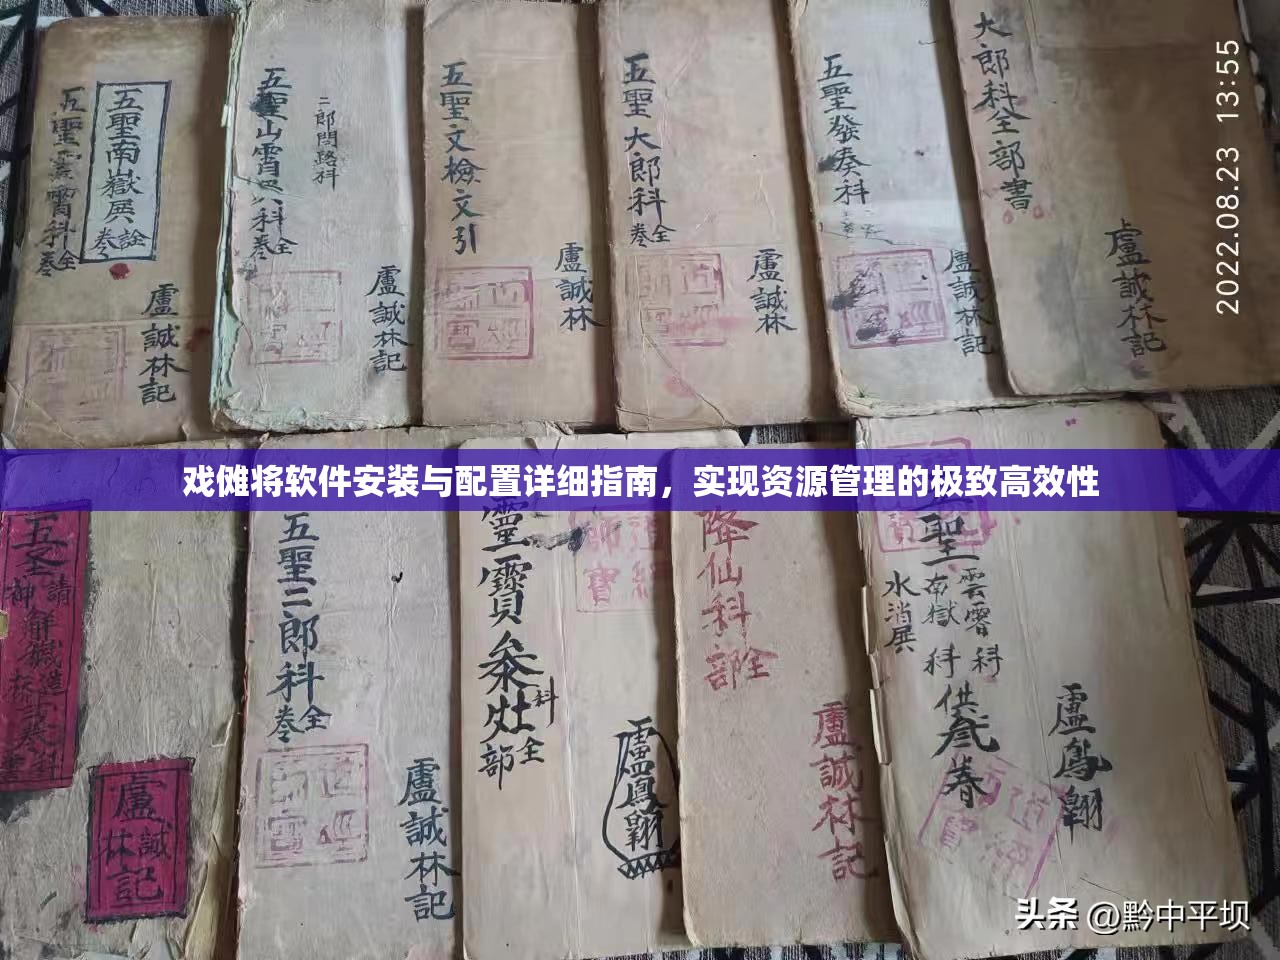 五聖南嶽展
全卷
盧誠林記
二郎開路科
科全卷
盧誠林記
五聖文檢文引
盧誠林
五聖大郎科全卷
盧誠林
五聖發奏科
盧誠林記
大郎科全部書
盧誠林記
2022.08.23 13:55
戏傩将软件安装与配置详细指南，实现资源管理的极致高效性
五圣
請
神
盧誠林記
五聖二郎科全卷
盧誠林記
靈寶
灶科全部
盧鳳翱
降仙科全部
盧誠林記
聖
雲霄科
南獄科
水消展
供叁
盧鳳翱
头条 @黔中平坝